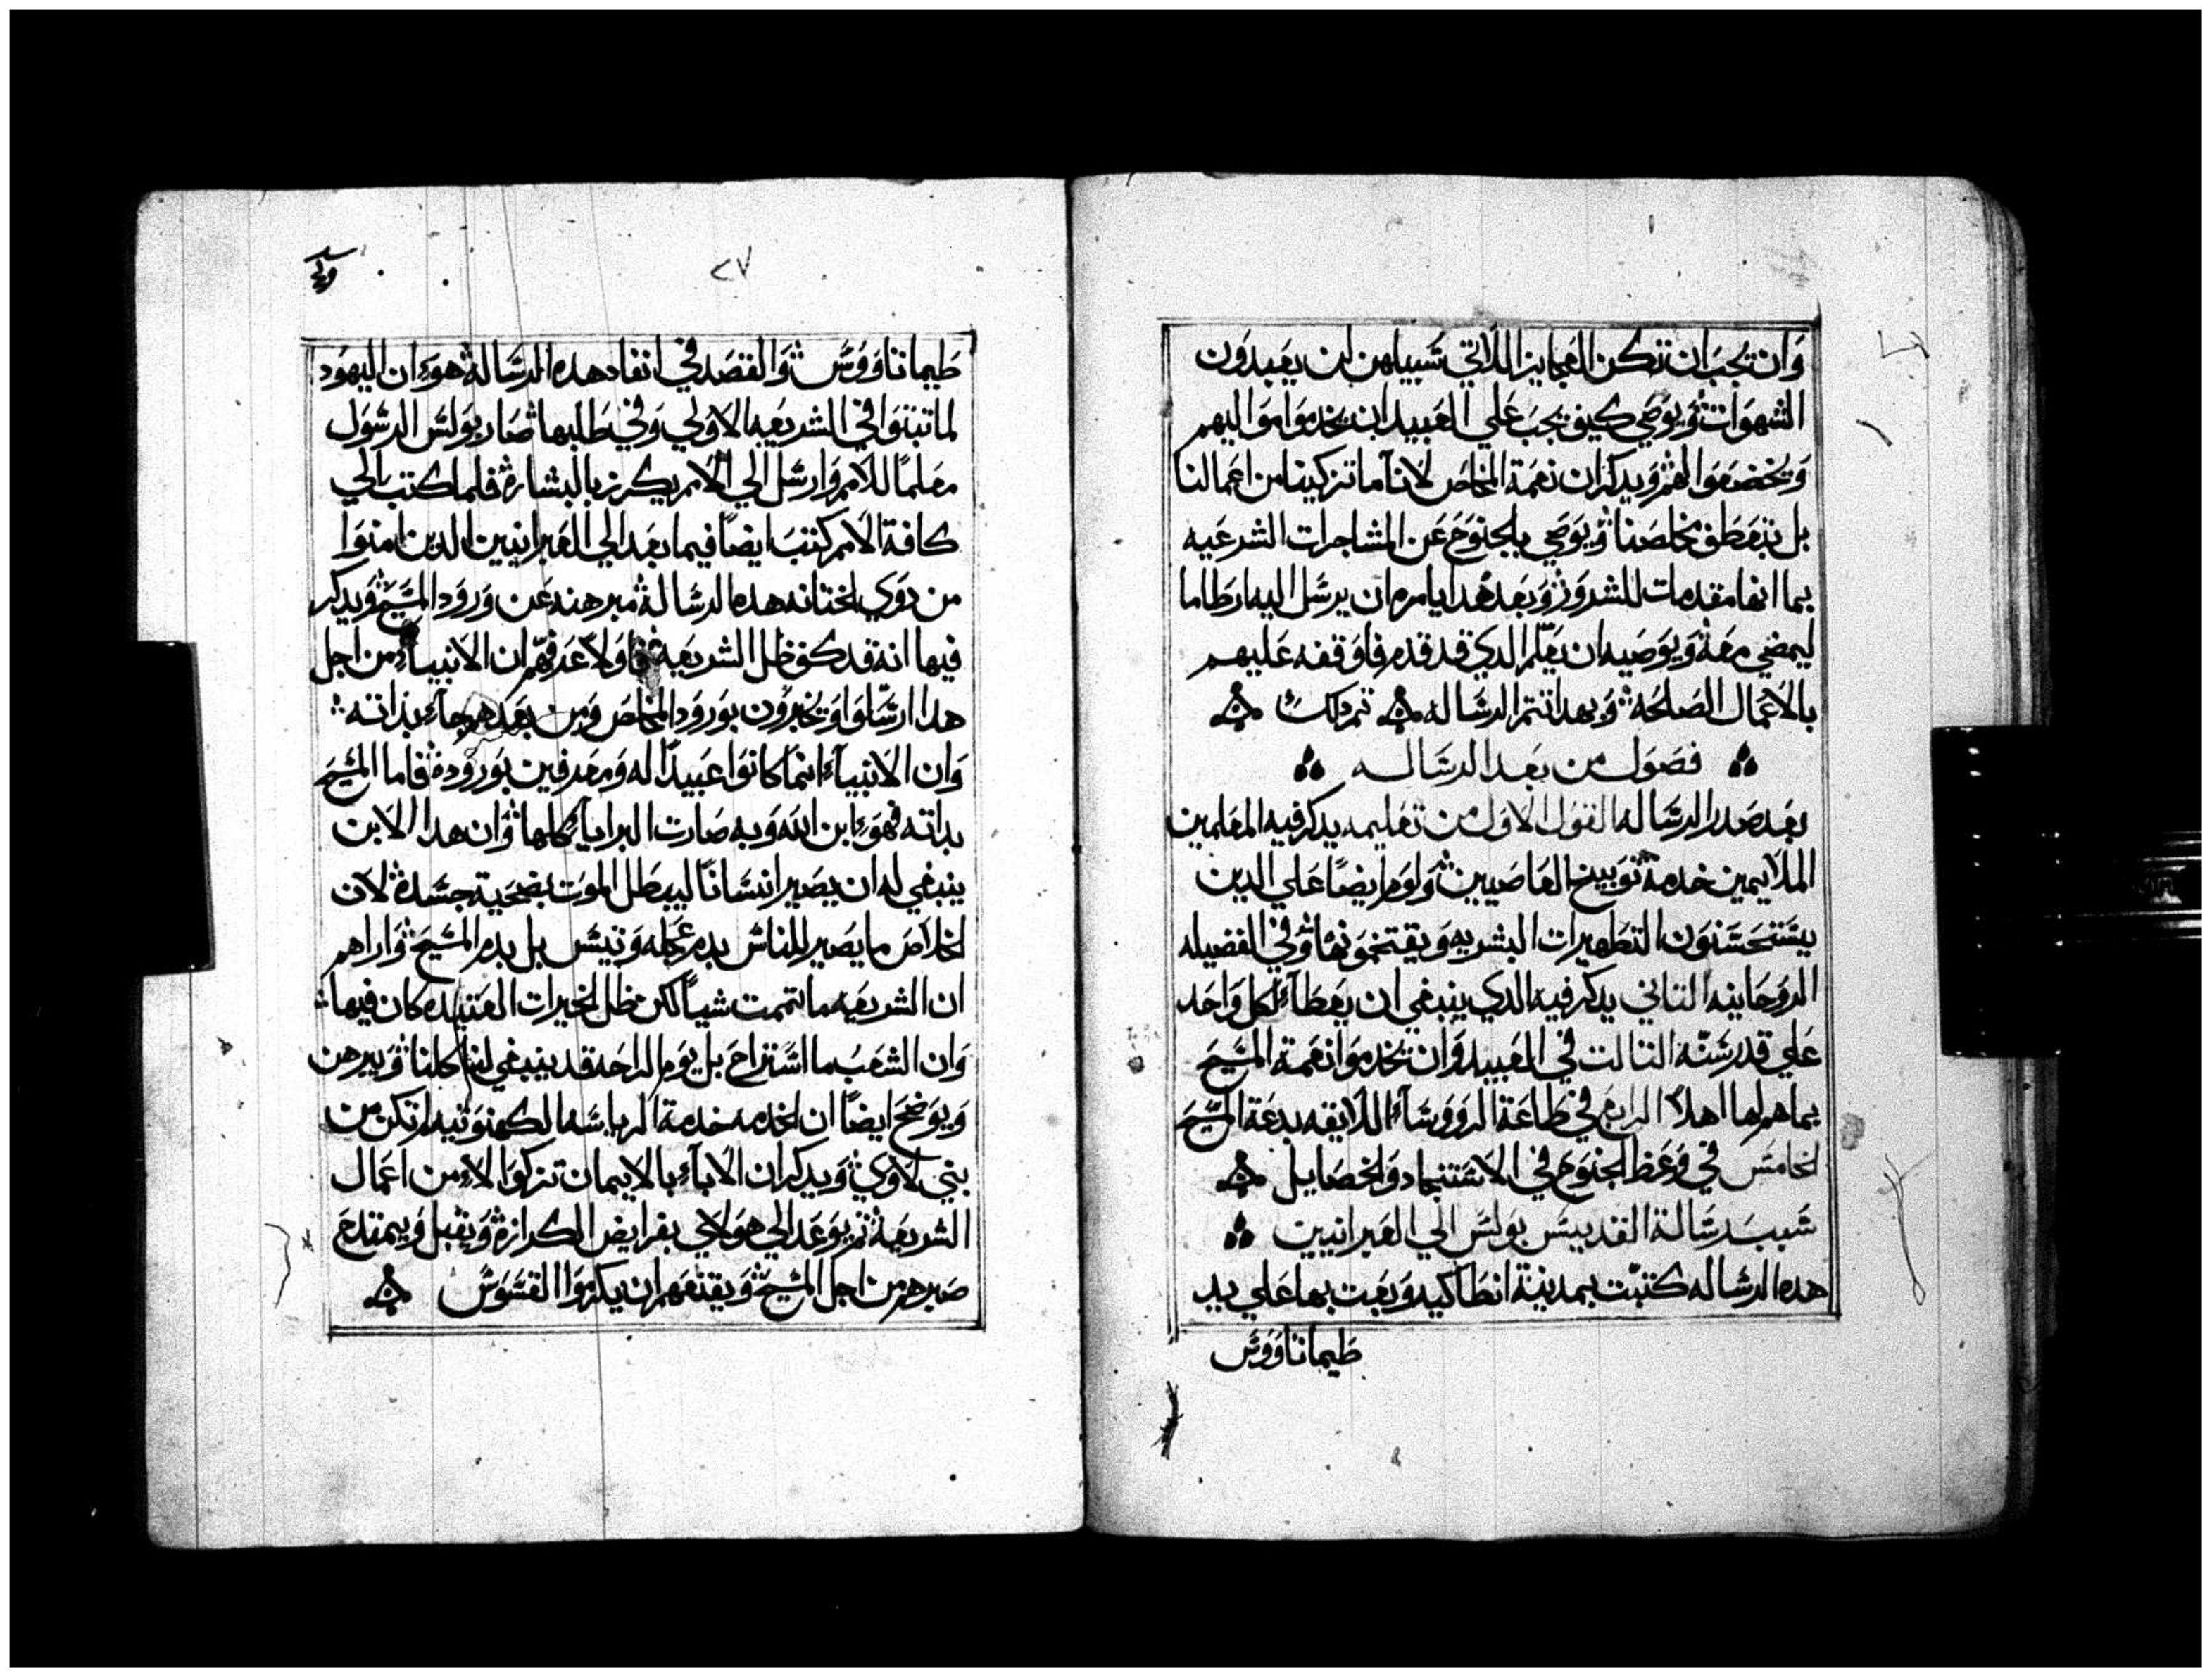 وان تجب ان تكن العجايز اللاتي سبيلهن ان يعبدون
الشهوات ويوصي كيف يجب علي العبيد ان يخدموا مواليهم
ويخضعوا لهم ويدكر ان نعمة المخلص لاننا ما تزكينا من اعمالنا
بل بتعطف مخلصنا ويوصي بلجنوح عن المشاجرات الشرعيه
بما انها مقدمات للشرور وبعد هدا يامره ان يرسل اليه ارطاما
ليمضي معه ويوصيه ان يعلم الدي قد قدم فاوقفه عليهم
بالاعمال الصلحه وبهدا تتم الرساله تم دلك
فصول من بعد الرساله
بعد صدر الرساله القول الاول من تعليمه يدكر فيه المعلمين
الملايمين خدمة توبيخ العاصيين ولوم ايضًا علي الدين
يستحسنون التطهيرات البشريه ويقتخمونها وفي الفضيله
الروحانيه التاني يدكر فيه الدي ينبغي ان يعطاء لكل واحد
علي قدر سنه التالت في العبيد وان تخدموا نعمة المسيح
بما هم لها اهلاً الرابع في طاعة الروسآء اللايقه بدعة المسيح
الخامس في وعظ الجنوح في الاستنجاد والخصايل
سبب رسالة القديس بولس الي العبرانيين
هده الرساله كتبت بمدينة انطاكيه وبعت بها علي يد
طيماتاووس
٢٧
طيماتاووس والقصد في انفاد هده الرسالة هو ان اليهود
لما تبتوا في الشريعه الاولي وفي طلبها صار بولس الرسول
معلمًا للامم وارسل الي الامم يكرز بالبشارة فلما كتب الي
كافة الامم كتب ايضًا فيما بعد الي العبرانيين الدين امنوا
من دوي الختانه هده الرسالة مبرهنه عن ورود المسيح ويدكر
فيها انه قد كف ظل الشريعه فاولاً عرفهم ان الانبياء من اجل
هدا ارسلوا ويخبرون بورود المخلص ومن بعدهم جاء بذاته
وان الانبياء انما كانوا عبيدًا له ومعرفين بوروده فاما المسيح
بداته فهو ابن الله وبه صارت البرايا كلها وان هدا الابن
ينبغي له ان يصير انسانًا ليبطل الموت بضحية جسده لان
الخلاص ما يصير للناس بدم عجله وتيس بل بدم المسيح واراهم
ان الشريعه ما تتممت شياً لكن ظل الخيرات العتيده كان فيها
وان الشعب ما استراح بل يوم الراحه قد ينبغي لنا كلنا ويبرهن
ويوضح ايضًا ان الخدمه خدمة الرياسه الكهنوتيه لم تكن من
بني لاوي ويدكر ان الاباء بالايمان تزكوا لا من اعمال
الشريعة تم يوعد الي هولاي بفرايض الكرازة ويقبل ويمتدح
صبرهم من اجل المسيح ويقنعهم ان يكرموا القسوس